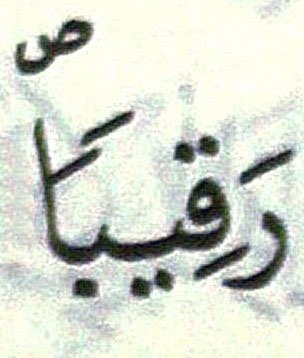 رَقِيبًا ص